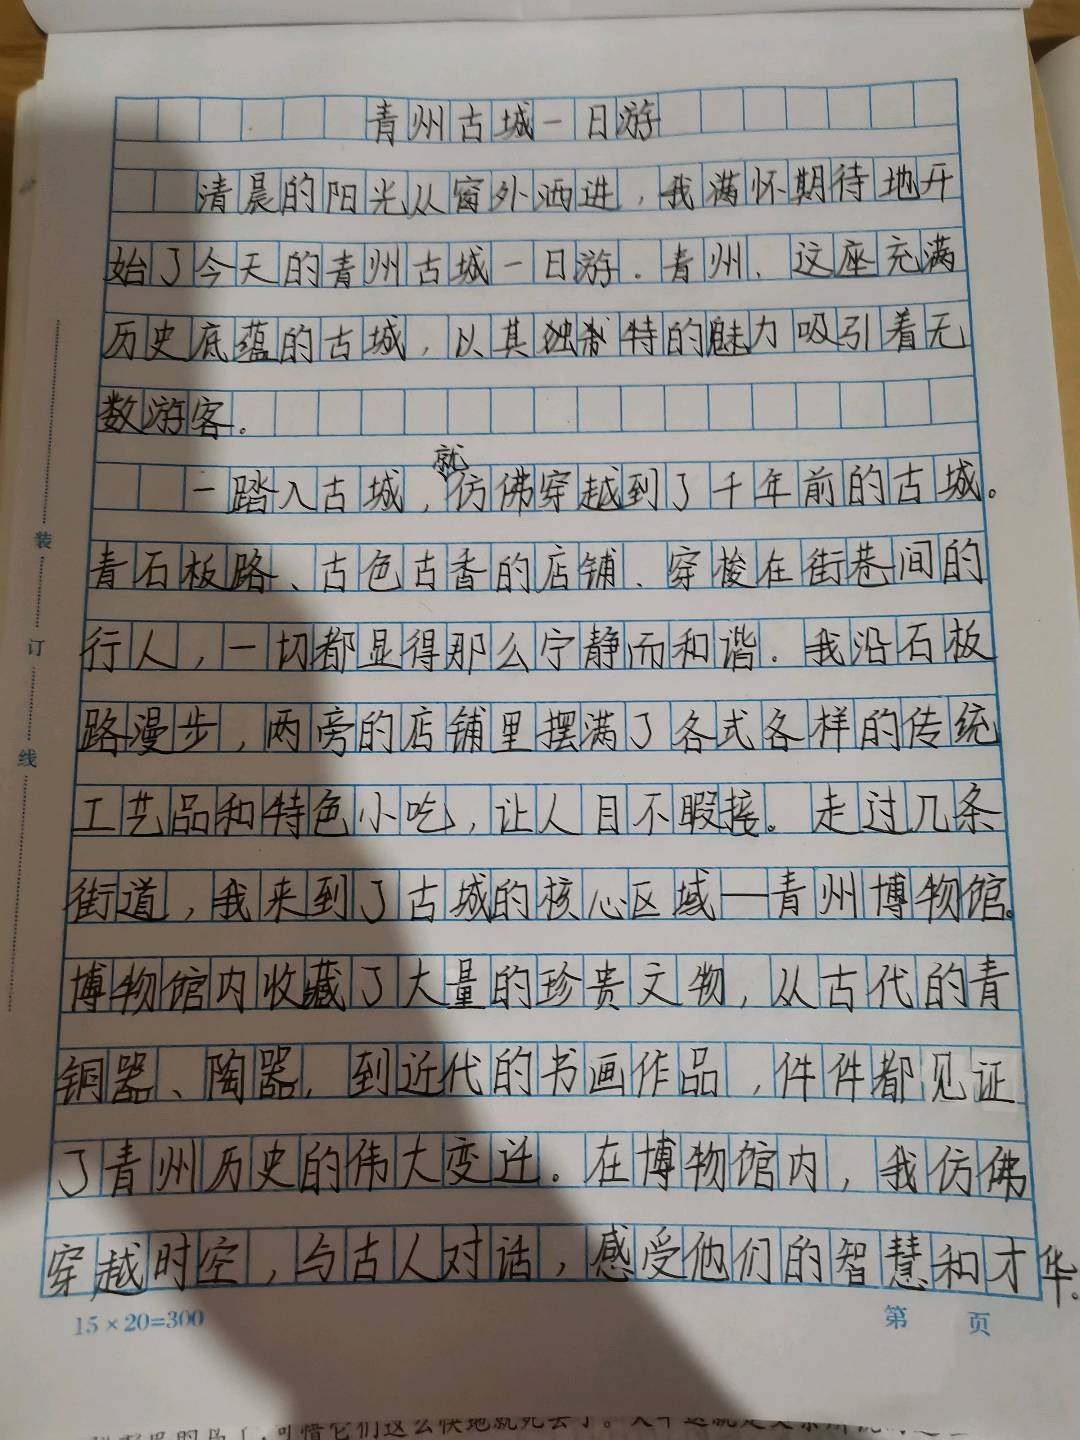 青州古城一日游
清晨的阳光从窗外洒进，我满怀期待地开
始了今天的青州古城一日游。青州、这座充满
历史底蕴的古城，以其独特的魅力吸引着无
数游客。
一踏入古城，就仿佛穿越到了千年前的古城。
青石板路、古色古香的店铺、穿梭在街巷间的
行人，一切都显得那么宁静而和谐。我沿石板
路漫步，两旁的店铺里摆满了各式各样的传统
工艺品和特色小吃，让人目不暇接。走过几条
街道，我来到了古城的核心区域——青州博物馆。
博物馆内收藏了大量的珍贵文物，从古代的青
铜器、陶器，到近代的书画作品，件件都见证
了青州历史的伟大变迁。在博物馆内，我仿佛
穿越时空，与古人对话，感受他们的智慧和才华。
15×20=300
第 页
装
订
线